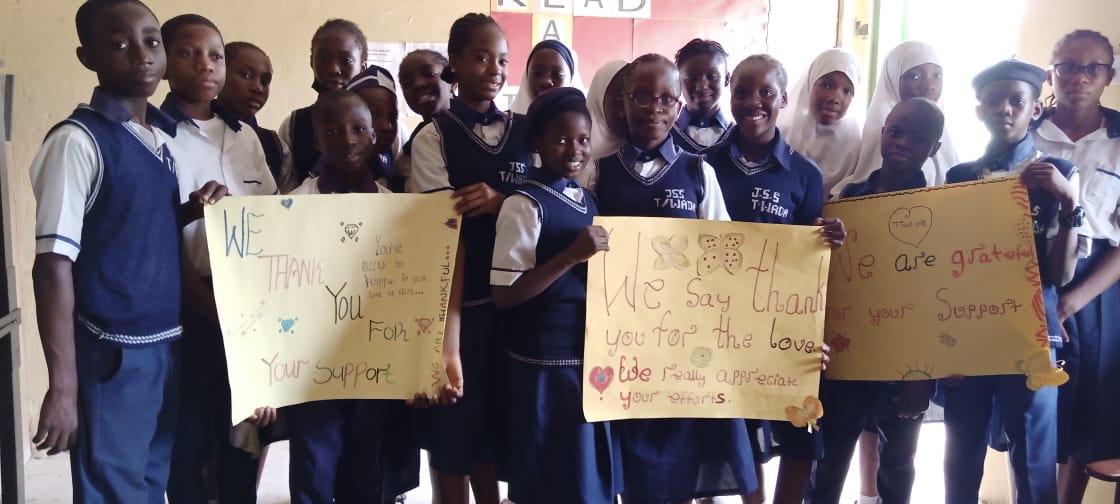 READ
A
JSS
T/WADA
JSS
T/WADA
J.S.S
T.WADA
WE
THANK
YOU
FOR
Your Support
You've
BEEN SO
Helpful in our
time of need...
WE ARE THANKFUL...
We Say thank
you for the love
We really appreciate
your efforts.
Thank you
We are grateful
for your Support